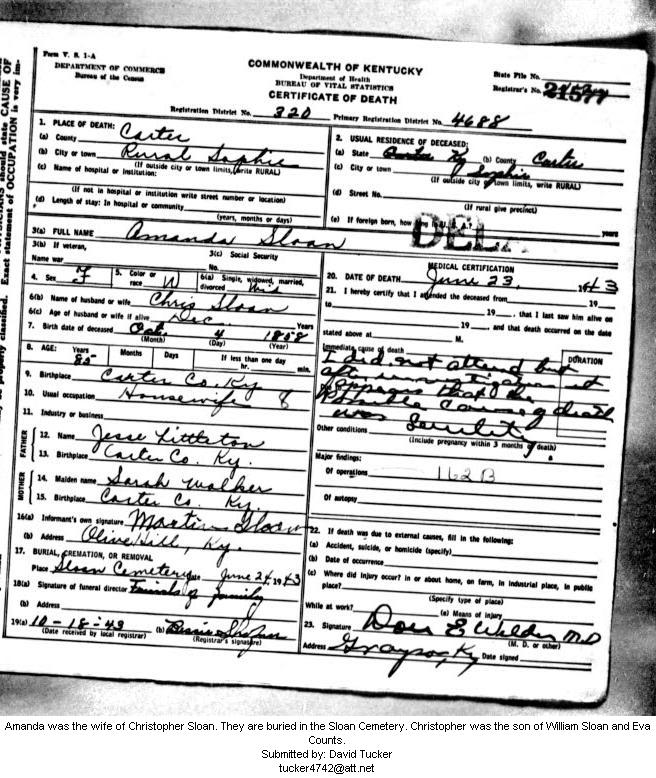 Form V. S. 1-A
DEPARTMENT OF COMMERCE
Bureau of the Census
COMMONWEALTH OF KENTUCKY
Department of Health
BUREAU OF VITAL STATISTICS
CERTIFICATE OF DEATH
State File No.
Registrar's No.
Registration District No. 320 Primary Registration District No. 4688
1. PLACE OF DEATH:
(a) County Carter
(b) City or town Rural Sophie
(If outside city or town limits, write RURAL)
(c) Name of hospital or institution:
(If not in hospital or institution write street number or location)
(d) Length of stay: In hospital or community
(years, months or days)
2. USUAL RESIDENCE OF DECEASED:
(a) State Ky (b) County Carter
(c) City or town Sophie
(If outside city or town limits, write RURAL)
(d) Street No.
(If rural give precinct)
(e) If foreign born, how long in U. S. A.? years
3(a) FULL NAME Amanda Sloan
3(b) If veteran,
Name war
3(c) Social Security
No.
4. Sex F
5. Color or race W
6(a) Single, widowed, married, divorced
6(b) Name of husband or wife Chris Sloan
6(c) Age of husband or wife if alive Dec. Years
7. Birth date of deceased Oct. 4 1858
(Month) (Day) (Year)
8. AGE: Years 85 Months Days If less than one day
hr. min.
9. Birthplace Carter Co. Ky
10. Usual occupation Housewife 8
11. Industry or business
FATHER
12. Name Jesse Littleton
13. Birthplace Carter Co. Ky.
MOTHER
14. Maiden name Sarah Walker
15. Birthplace Carter Co. Ky.
16(a) Informant's own signature Martin Sloan
(b) Address Olive Hill, Ky.
17. BURIAL, CREMATION, OR REMOVAL
Place Sloan Cemetery Date June 24, 1943
18(a) Signature of funeral director Friends of family
(b) Address
19(a) 10-18-43 (b)
(Date received by local registrar) (Registrar's signature)
MEDICAL CERTIFICATION
20. DATE OF DEATH June 23 1943
21. I hereby certify that I attended the deceased from 19
to 19, that I last saw him alive on
19, and that death occurred on the date
stated above at M.
Immediate cause of death
DURATION
I did not attend but
after investigation it
appears that the
probable cause of death
was Senility
Other conditions
(Include pregnancy within 3 months of death)
Major findings:
Of operations 162B
Of autopsy
22. If death was due to external causes, fill in the following:
(a) Accident, suicide, or homicide (specify)
(b) Date of occurrence
(c) Where did injury occur? In or about home, on farm, in industrial place, in public
place?
(Specify type of place)
While at work? (e) Means of injury
23. Signature Don E Wilder MD
(M. D. or other)
Address Grayson, Ky Date signed
Exact statement of OCCUPATION is very im-
Amanda was the wife of Christopher Sloan. They are buried in the Sloan Cemetery. Christopher was the son of William Sloan and Eva
Counts.
Submitted by: David Tucker
tucker4742@att.net